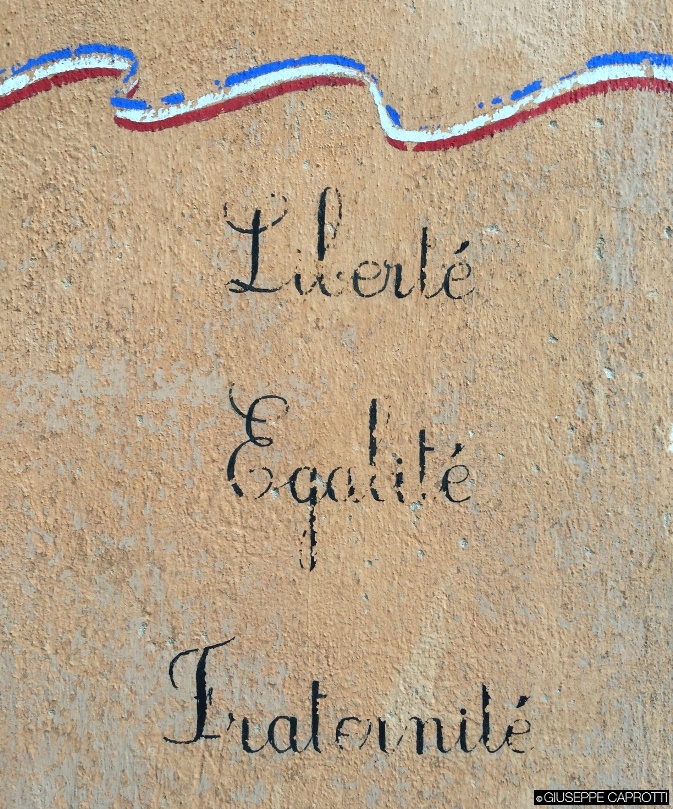 Liberté
Egalité
Fraternité
©GIUSEPPE CAPROTTI